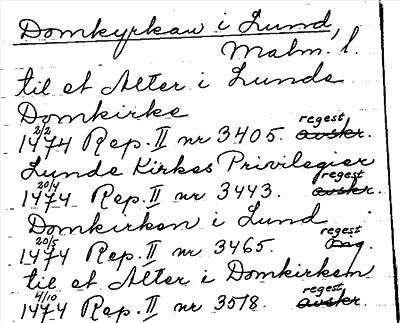 Domkyrkan i Lund,
Malm. l.
til et Alter i Lunde
Domkirke
2/2 regest
1474 Rep. II nr 3405. avskr.
Lunde Kirkes Privilegier
20/4 regest
1474 Rep. II nr 3443. avskr.
Domkirken i Lund
20/5 regest
1474 Rep. II nr 3465.
til et Alter i Domkirken
4/10 regest
1474 Rep. II nr 3518. avskr.